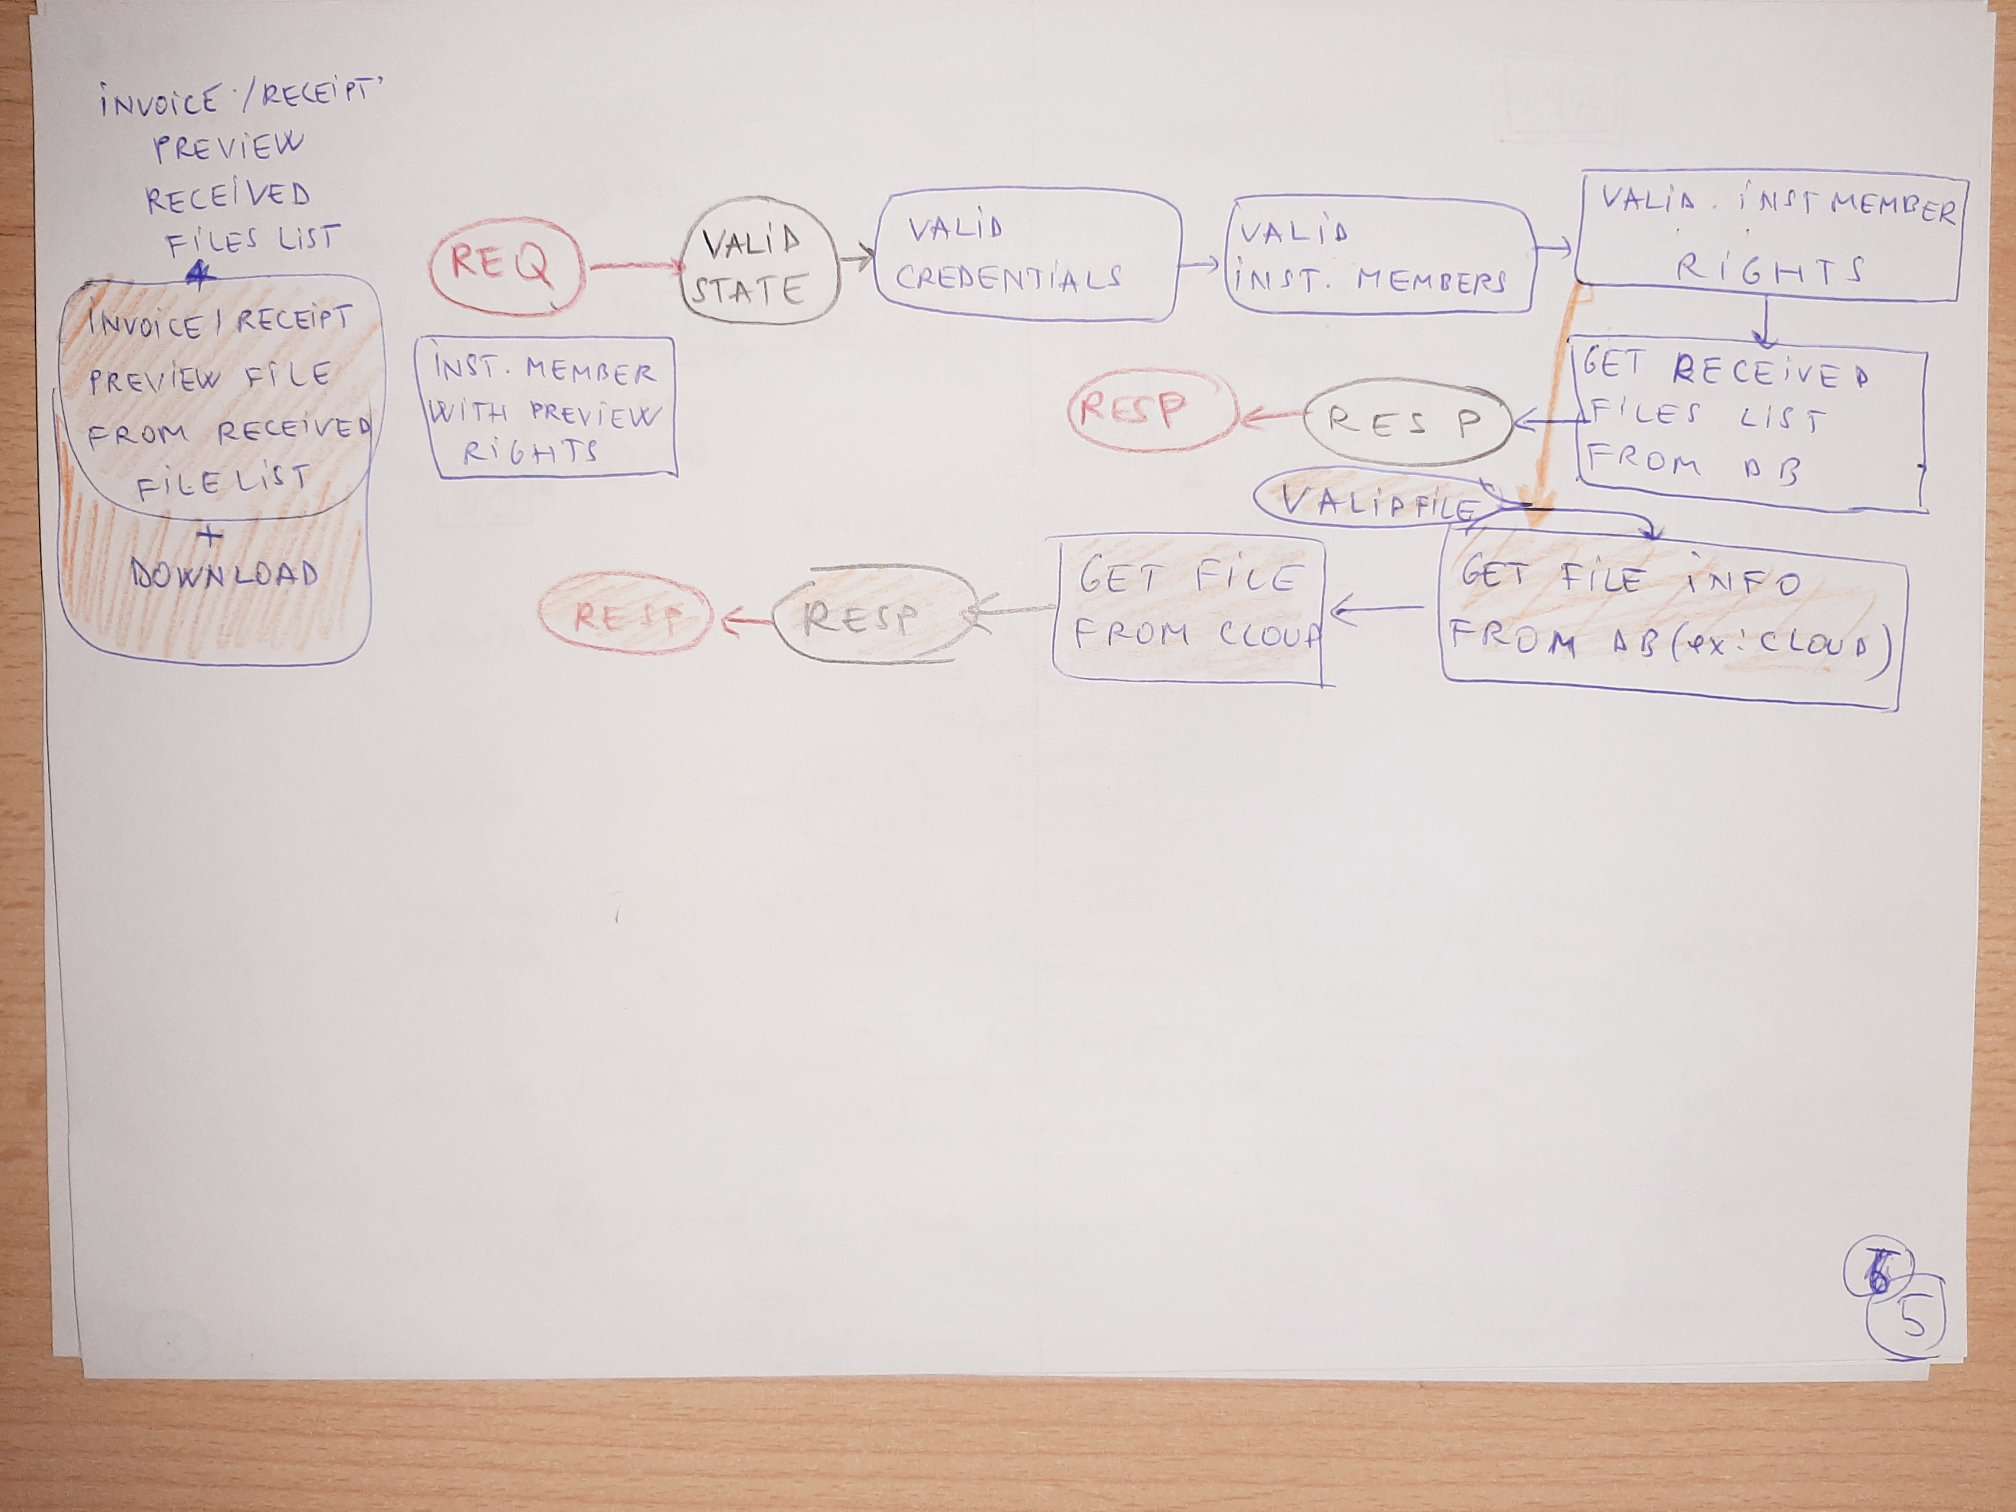 INVOICE /RECEIPT
PREVIEW
RECEIVED
FILES LIST
INVOICE / RECEIPT
PREVIEW FILE
FROM RECEIVED
FILE LIST
+
DOWNLOAD
REQ
INST. MEMBER
WITH PREVIEW
RIGHTS
VALID
STATE
VALID
CREDENTIALS
VALID
INST. MEMBERS
VALID. INST MEMBER
RIGHTS
GET RECEIVED
FILES LIST
FROM DB
RESP
RESP
VALID FILE
GET FILE INFO
FROM DB (ex: CLOUD)
GET FILE
FROM CLOUD
RESP
RESP
5